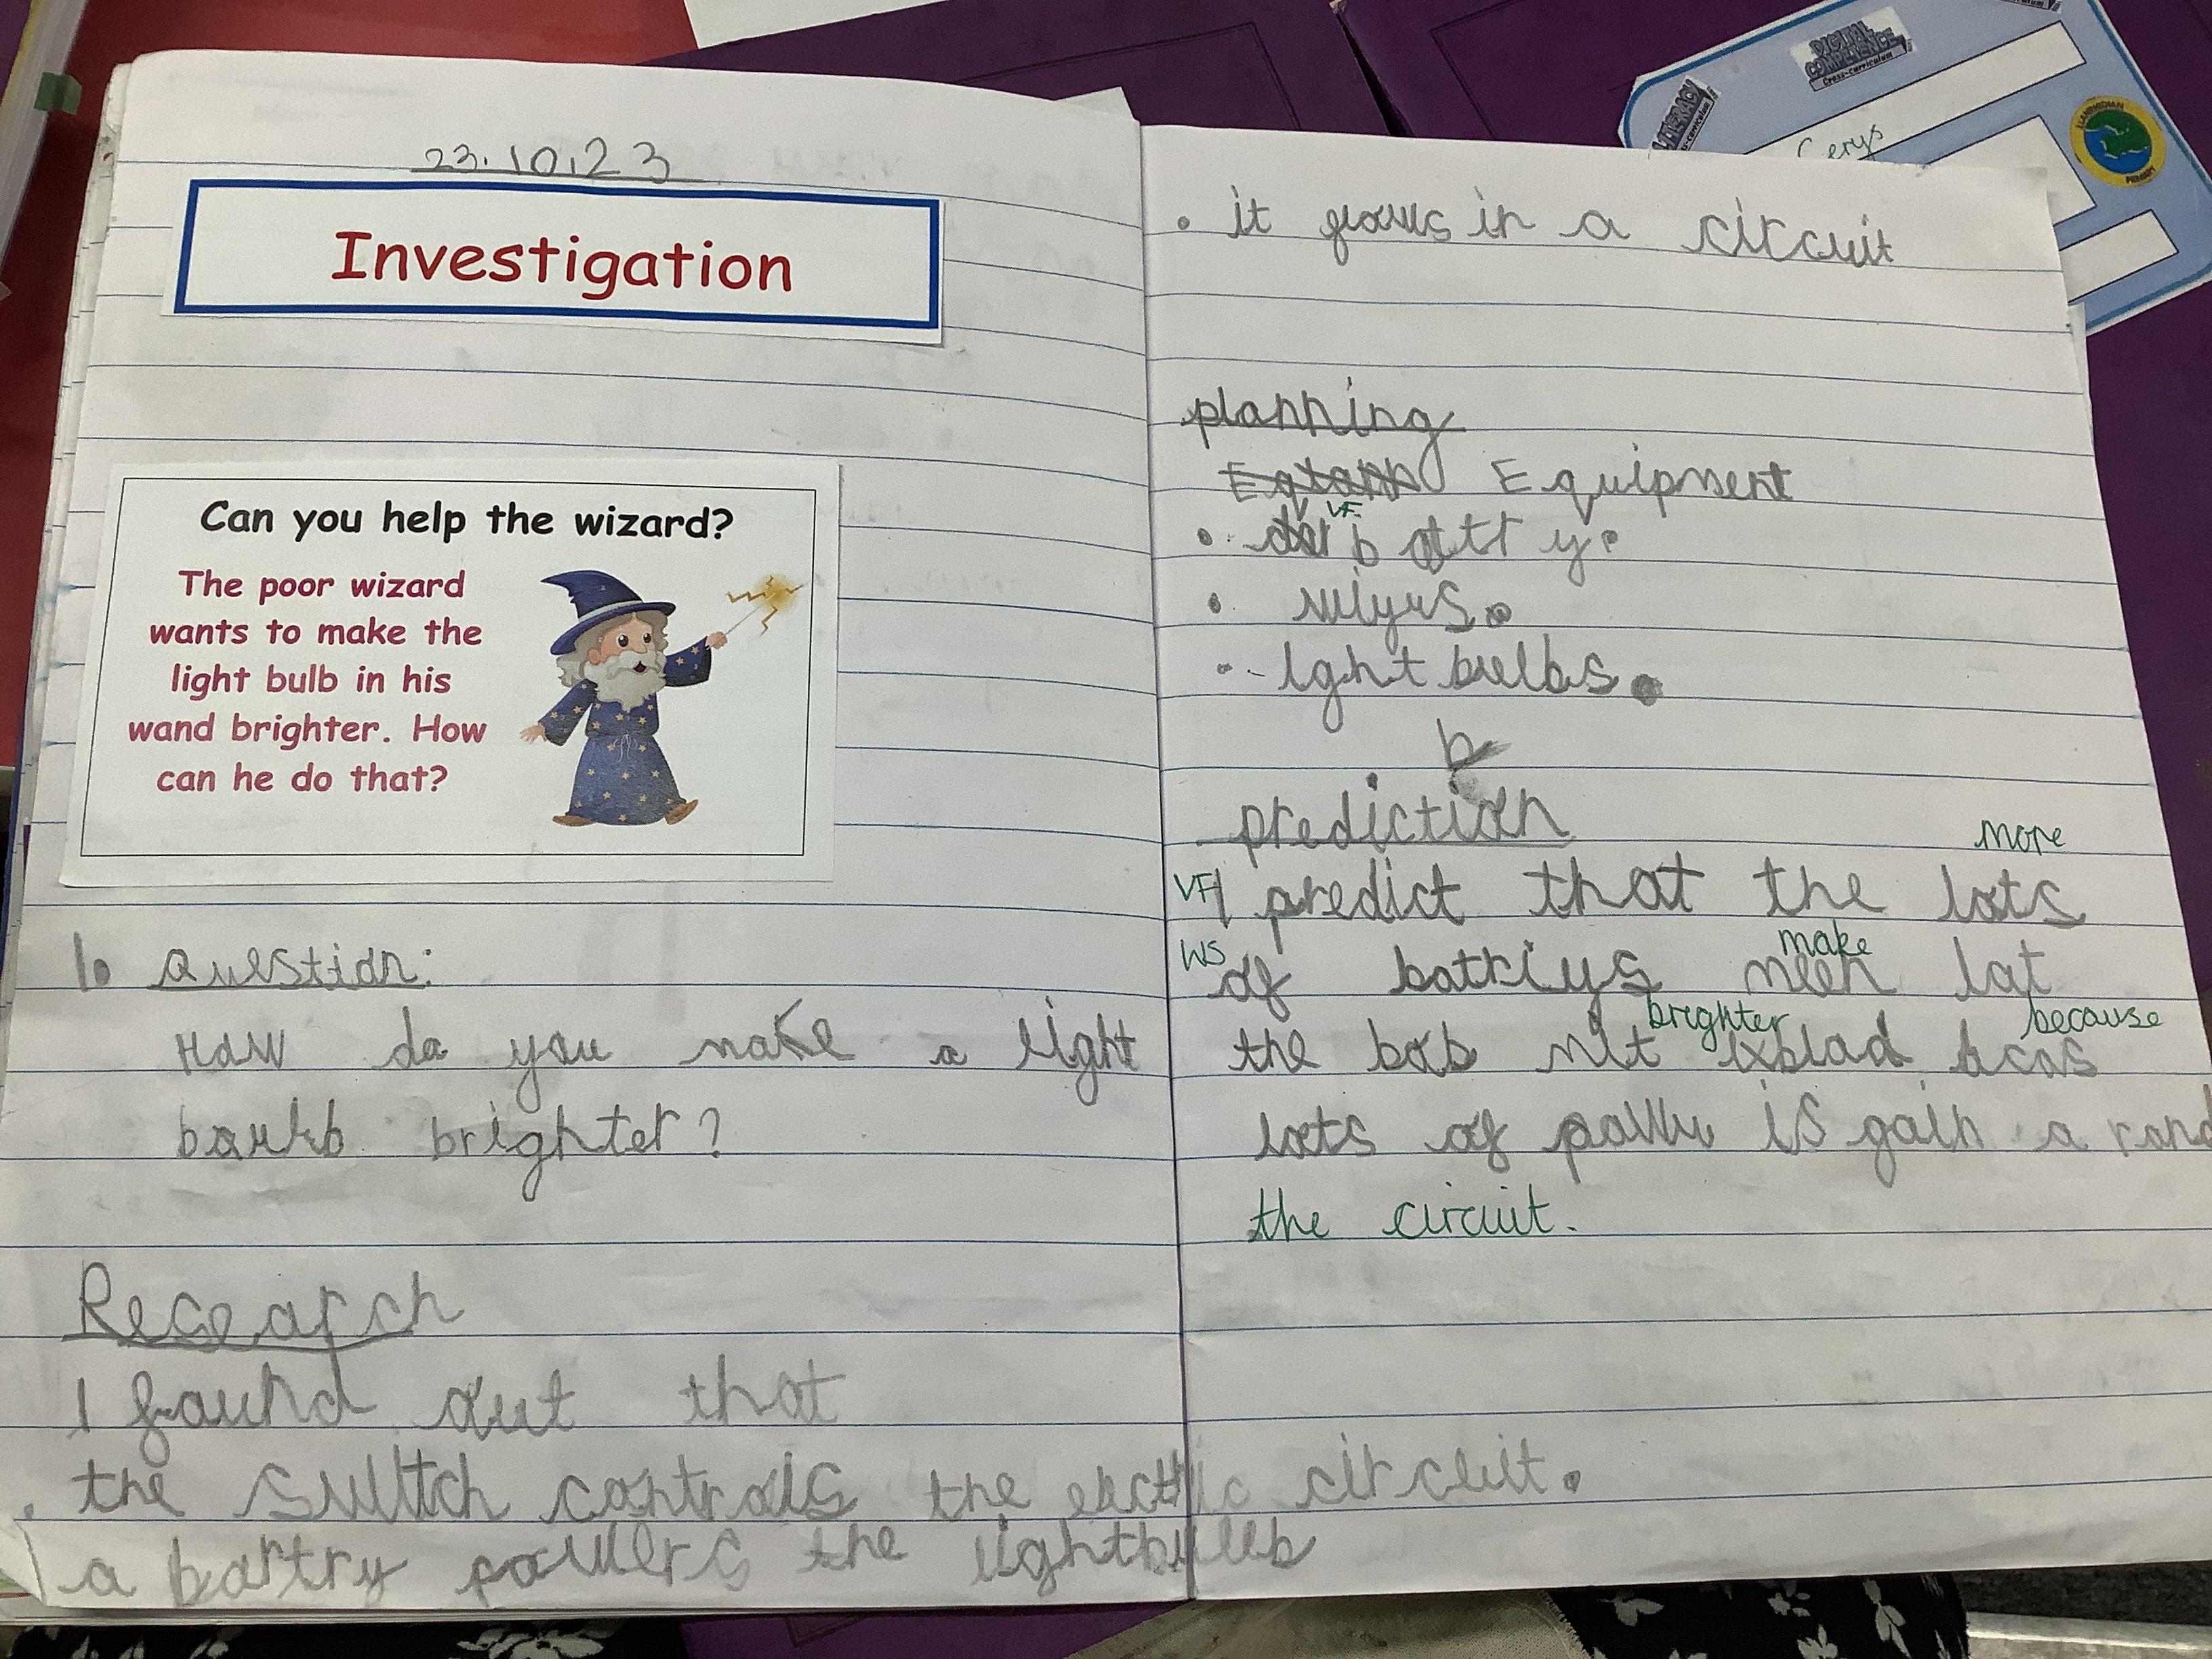 23.10.23
Investigation
Can you help the wizard?
The poor wizard
wants to make the
light bulb in his
wand brighter. How
can he do that?
1. Question:
How do you make a light
brighter?
Research
I found out that
. the switch controls the electric circuit.
a bartry powers the lightbulb
• it flows in a circuit
planning
Equipment
VF
• batt y.
• wiyus.
• lght bulbs.
b
prediction
more
VF I predict that the lots
make
WS of battriys meen lat
brighter because
the bob mit ixblad bcos
lots of powu is gain a rand
the circuit.
DIGITAL
COMPETENCE
Cross-curriculum
LITERACY
Cerys
LLANRHIDIAN
PRIMARY